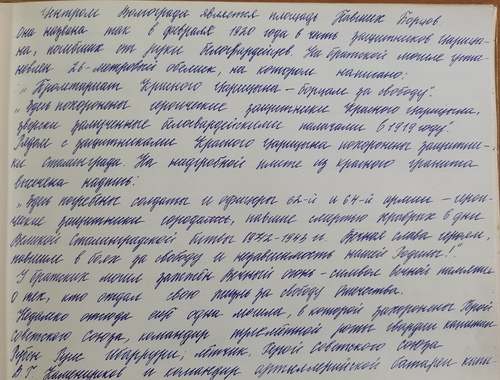 Центром Волгограда является площадь Павших Борцов.
Она названа так в феврале 1920 года в честь защитников Царицы-
на, погибших от руки белогвардейцев. На братской могиле уста-
новлен 26-метровый обелиск, на котором написано:
„Пролетариат Красного Царицына – борцам за свободу".
„Здесь похоронены героические защитники Красного Царицына,
зверски замученные белогвардейскими палачами в 1919 году."
Рядом с защитниками Красного Царицына похоронены защитни-
ки Сталинграда. На надгробной плите из красного гранита
высечена надпись:
„Здесь погребены солдаты и офицеры 62-й и 64-й армии – герои-
ческие защитники города, павшие смертью храбрых в дни
Великой Сталинградской битвы 1942-1943 гг. Вечная слава героям,
павшим в боях за свободу и независимость нашей Родины!"
У братских могил зажжён Вечный огонь – символ вечной памяти
о тех, кто отдал свою жизнь за свободу Отечества.
Недалеко отсюда ещё одна могила, в которой захоронены Герой
Советского Союза, командир пулемётной роты гвардии капитан
Рубен Руис Ибаррури; лётчик, Герой Советского Союза
В.Г. Каменщиков и командир артиллерийской батареи капи-